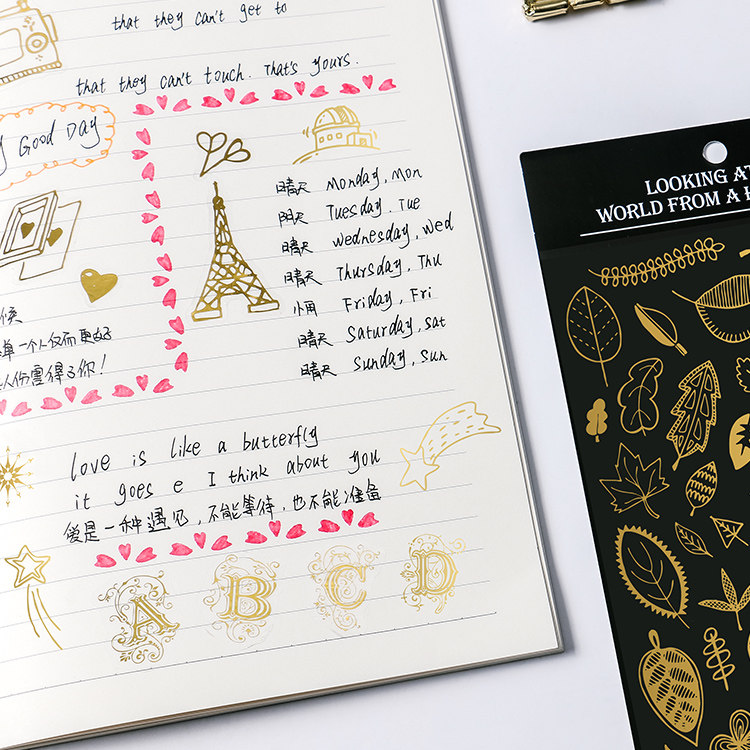 that they can't get to
that they can't touch. That's yours.
Good Day
晴天 Monday, Mon
阴天 Tuesday. Tue
晴天 Wednesday, Wed
晴天 Thursday, Thu
小雨 Friday, Fri
晴天 Saturday, Sat
晴天 Sunday, Sun
候
单一个人反而更好
人伤害得了你!
love is like a butterfly
it goes e I think about you
爱是一种遇见,不能等待,也不能准备
A B C D
LOOKING AT
WORLD FROM A